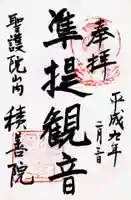 奉拝
平成九年
二月二日
準提観音
聖護院山内
積善院